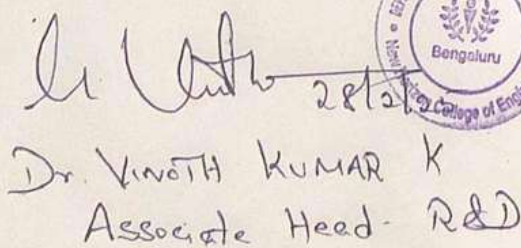 28/2/
Bengaluru
College of Eng
Dr. VINOTH KUMAR K
Associate Head - R&D